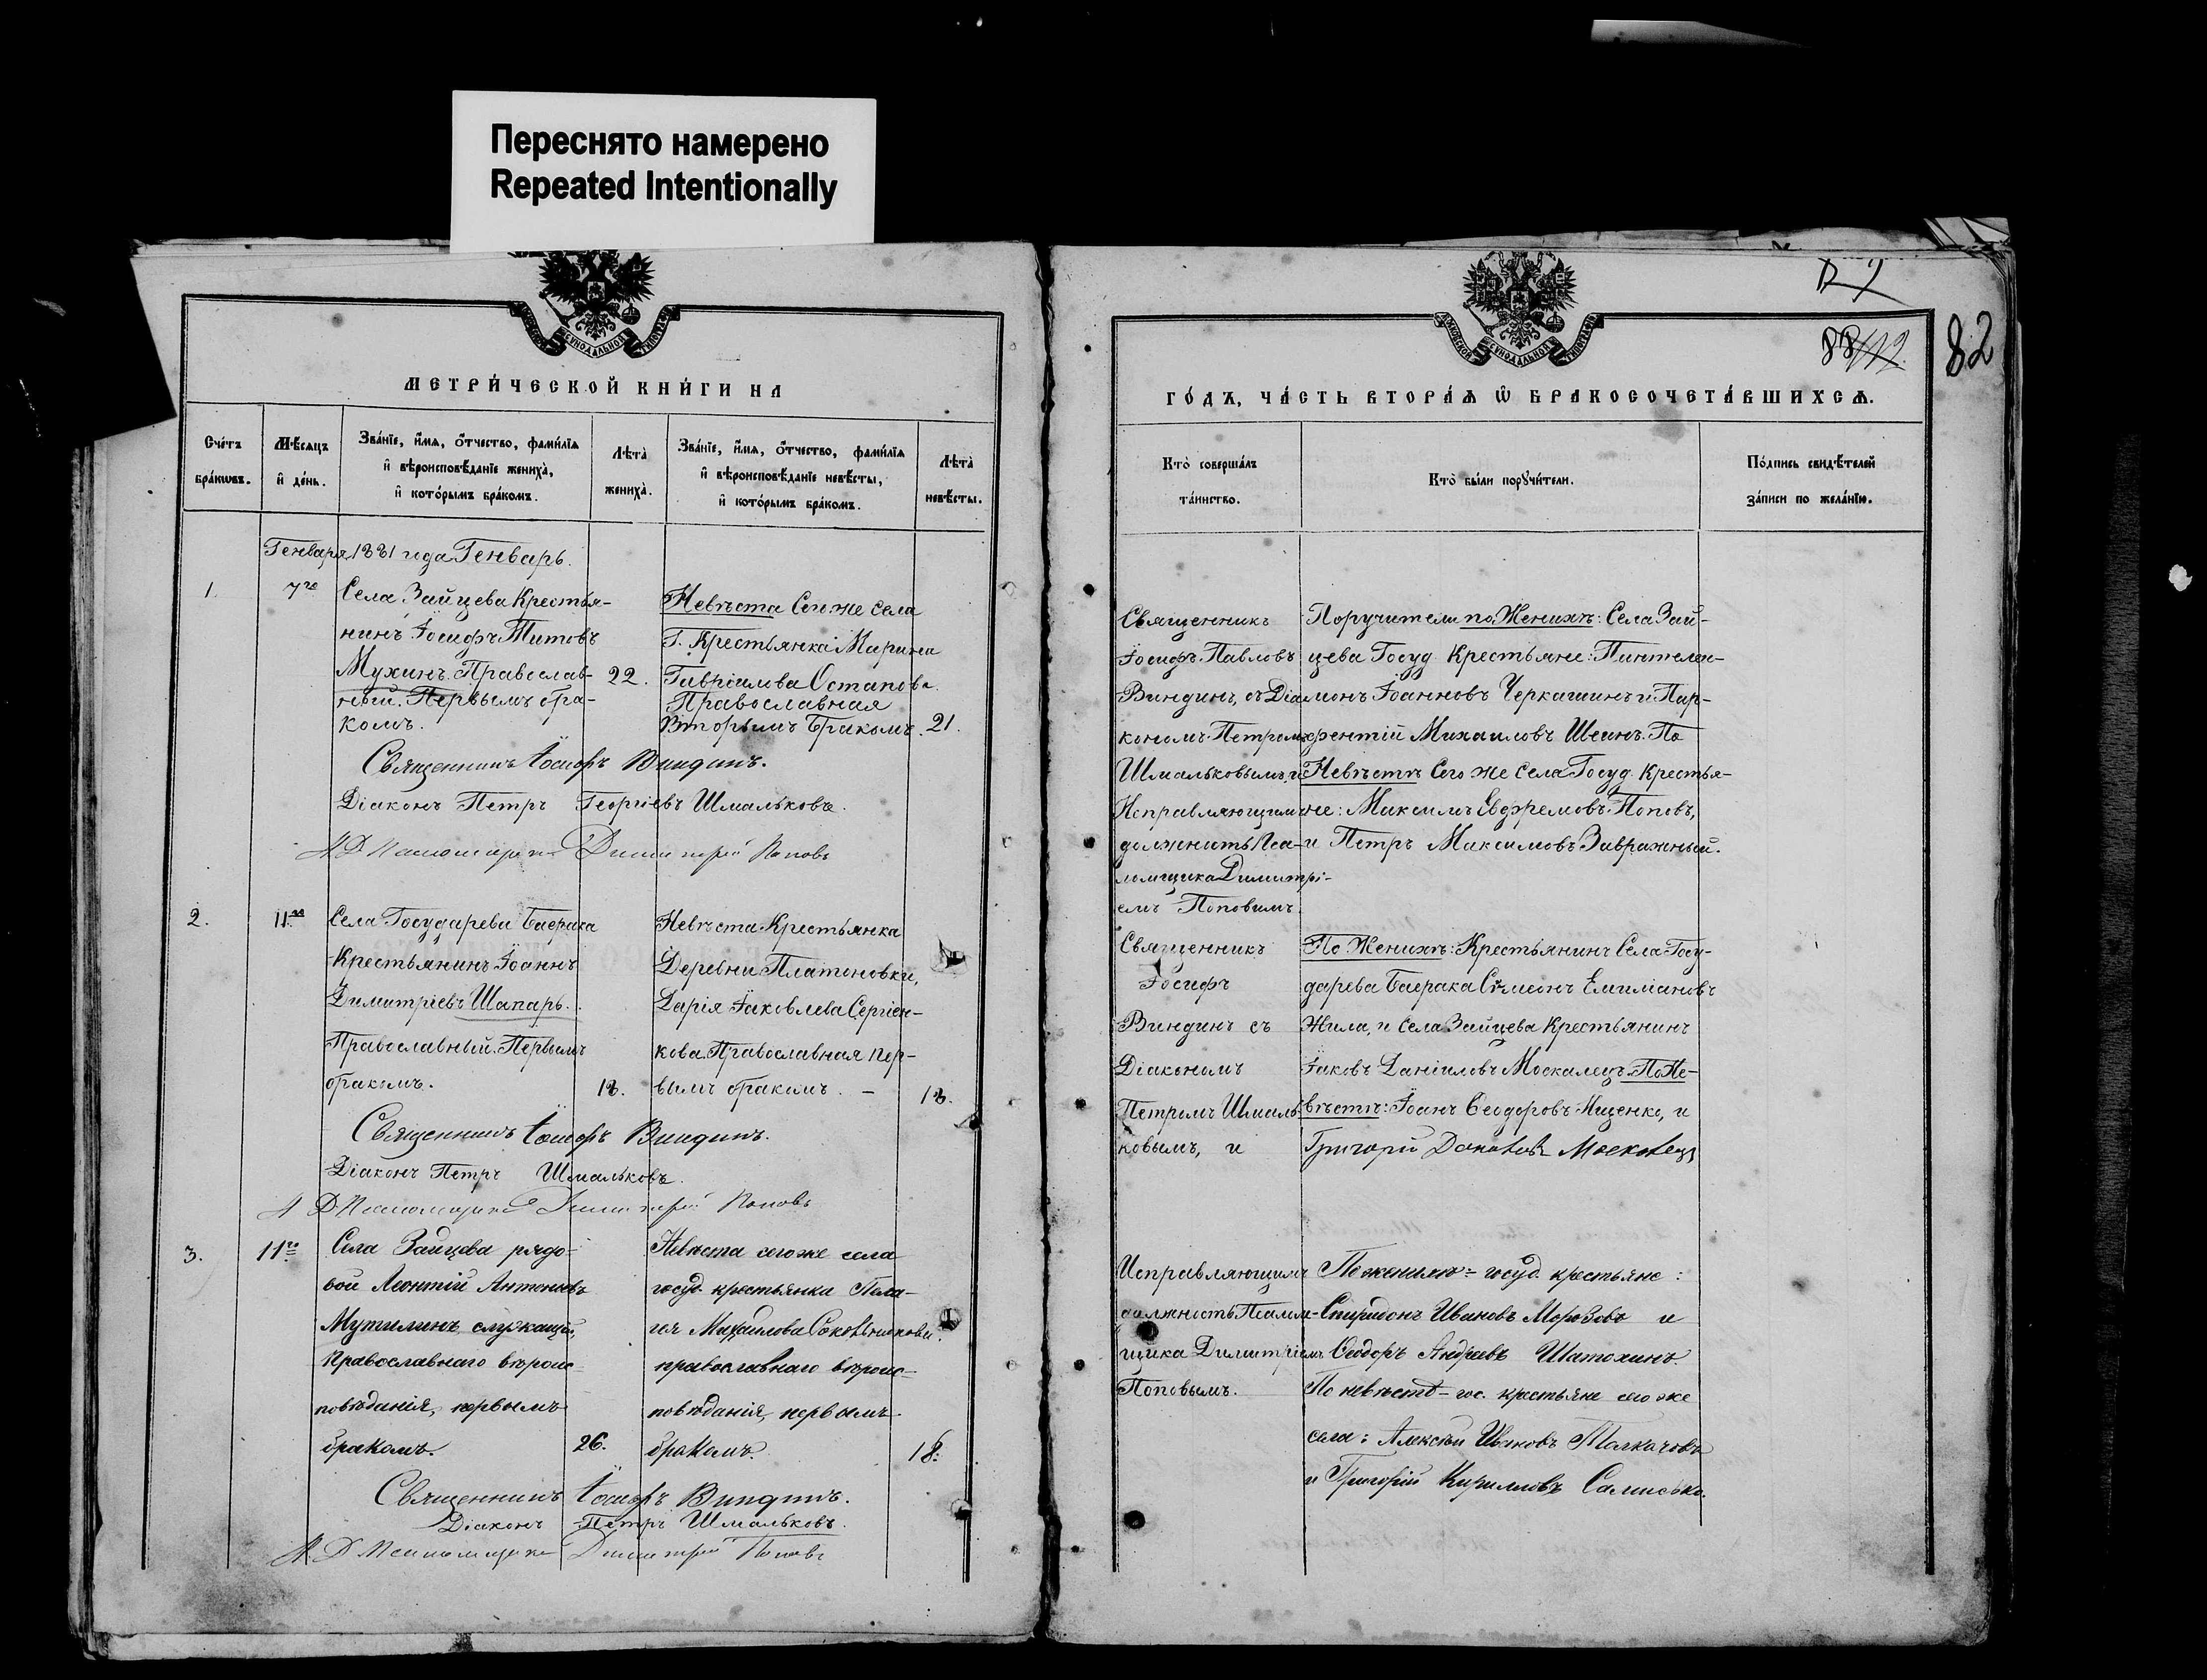 Переснято намерено
Repeated Intentionally
МЕТРИ́ЧЕСКОЙ КНИ́ГИ НА
Сче́тъ бра́ковъ.
Мѣ́сяцъ и҆ де́нь.
Зва́нїе, и҆́мѧ, ѻ҆́тчество, фами́лїѧ
и҆ вѣроисповѣ́данїе жениха̀,
и҆ кото́рымъ бра́комъ.
Лѣта̀ жениха̀.
Зва́нїе, и҆́мѧ, ѻ҆́тчество, фами́лїѧ
и҆ вѣроисповѣ́данїе невѣ́сты,
и҆ кото́рымъ бра́комъ.
Лѣта̀ невѣ́сты.
Генваря 1881 года Генварь.
1.
7го
Села Зайцева Крестья-
нинъ Іосифъ Титовъ
Мухинъ. Православ-
ный. Первымъ бра-
комъ.
22.
Невѣста Сего же села
Г. Крестьянка Марина
Гавріилова Остапова.
Православная
Вторымъ Бракомъ.
21.
Священникъ Іосифъ Виндинъ.
Діаконъ Петръ Георгіевъ Шмальковъ.
И. Д. Псаломщика Димитрій Поповъ
2.
11го
Села Государева Баерака
Крестьянинъ Іоаннъ
Димитріевъ Шапарь.
Православный. Первымъ
бракомъ.
18.
Невѣста Крестьянка
Деревни Платоновки,
Дарія Іаковлева Сергіен-
кова. Православная Пер-
вымъ бракомъ. –
18.
Священникъ Іосифъ Виндинъ.
Діаконъ Петръ Шмальковъ.
И Д Псаломщика Димитрій Поповъ
3.
11го
Села Зайцева рядо-
вой Леонтій Антоновъ
Мутилинъ, служащій,
православнаго вѣроис-
повѣданія, первымъ
бракомъ.
26.
Невѣста сего же села
госуд. крестьянка Пела-
гея Михайлова
православнаго вѣроис-
повѣданія, первымъ
бракомъ.
18.
Священникъ Іосифъ Виндинъ.
Діаконъ Петръ Шмальковъ.
И. Д Псаломщика Димитрій Поповъ
82
ГО́ДЪ, ЧА́СТЬ ВТОРА́Ѧ Ѡ҆ БРАКОСОЧЕТА́ВШИХСѦ.
Кто̀ соверша́лъ
та́инство.
Кто̀ бы́ли порꙋчи́тели.
По́дпись свидѣ́телей
за́писи по жела́нїю.
Священникъ
Іосифъ Павловъ
Виндинъ, съ Діа-
кономъ Петромъ
Шмальковымъ, и
Исправляющимъ
должность Пса-
ломщика Димитрі-
емъ Поповымъ.
Поручители по Женихѣ: Села Зай-
цева Госуд. Крестьяне: Пантелеи-
монъ Іоанновъ Черкашинъ и Пар-
фентій Михаиловъ Шеинъ. По
Невѣстѣ Сего же Села Госуд. Крестья-
не: Максимъ Евфремовъ Поповъ,
и Петръ Максимовъ Завражный.
Священникъ
Іосифъ
Виндинъ съ
Діакономъ
Петромъ Шмаль-
ковымъ, и
По Женихѣ: Крестьянинъ Села Госу-
дарева Баерака Сѵмеонъ Емиліановъ
Жила, и Села Зайцева Крестьянинъ
Іаковъ Даніиловъ Москалецъ. По Не-
вѣстѣ: Іоанъ Ѳеодоровъ Ищенко, и
Григорій Москалецъ
Исправляющимъ
должность Псалом-
щика Димитріемъ
Поповымъ.
По женихѣ = госуд. крестьяне:
Спиридонъ Ивановъ Морозовъ и
Ѳеодоръ Андреевъ Шатохинъ.
По невѣстѣ – гос. крестьяне сего же
села: Алексѣй Ивановъ Толкачовъ
и Григорій Кирилловъ